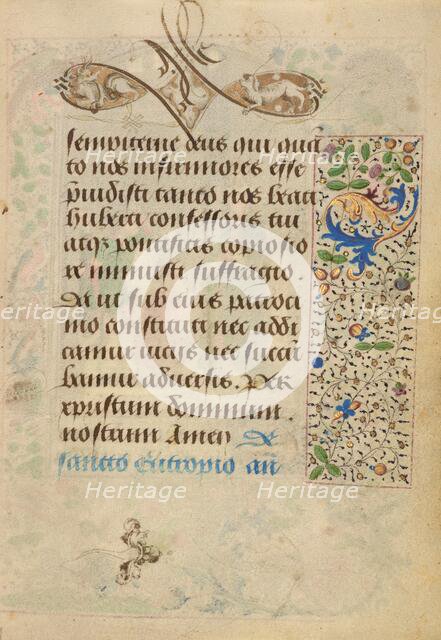 sempitine deus qui qua
to nos infirmiores esse
puidisti tanto nos beati
huberti confessoris tui
atqz pontificis copioſio
re munisti suffragio.
Da ut sub eius patroci
nio constituti nec addi
camur nec succū
bamur aduersis. Per
xpristum dominum
nostrum Amen De
sancto Eutropio añ
Heritage Heritage
Heritage Heritage
Heritage Heritage